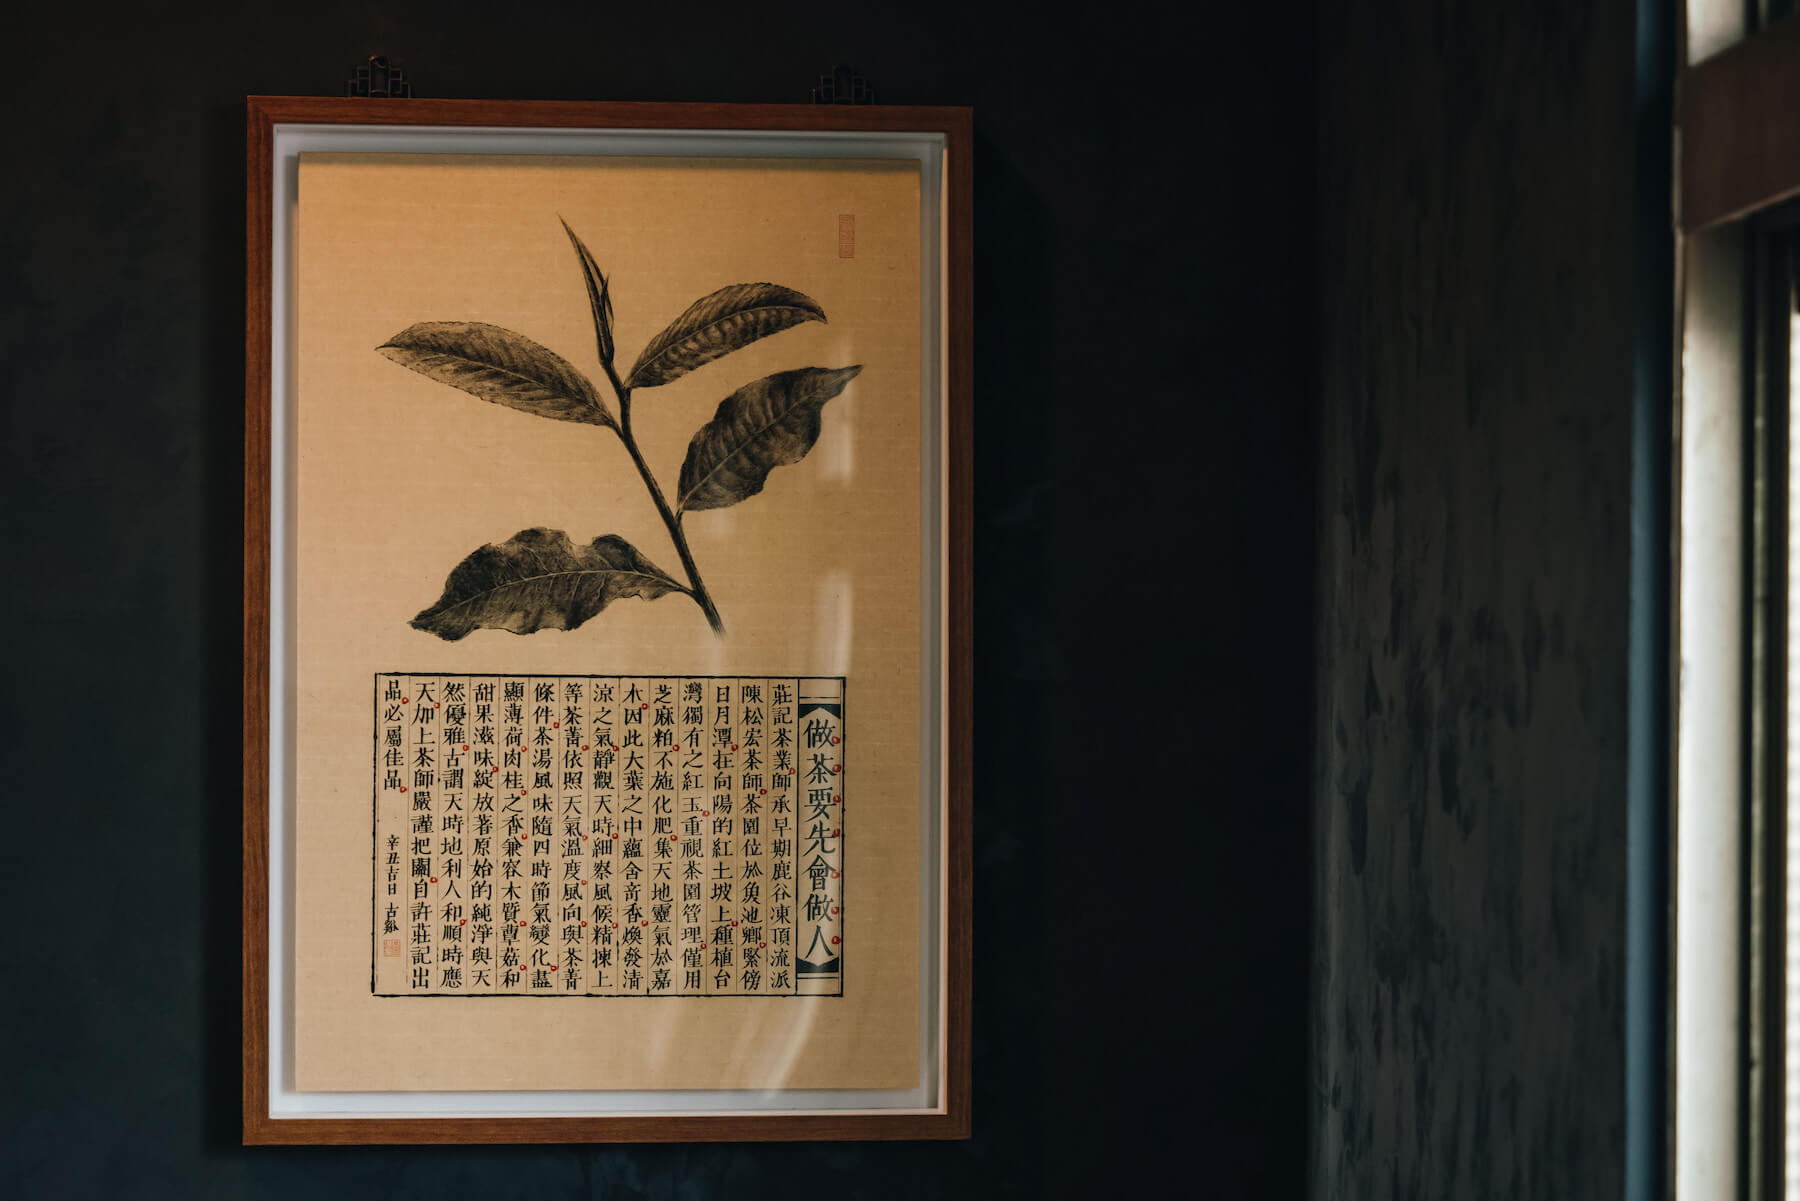 做茶要先會做人
莊記茶業師承早期鹿谷凍頂流派
陳松宏茶師茶園位於魚池鄉緊傍
日月潭在向陽的紅土坡上種植台
灣獨有之紅玉重視茶園管理僅用
芝麻粕不施化肥集天地靈氣於嘉
木因此大葉之中蘊含奇香煥發清
涼之氣靜觀天時細察風候精揀上
等茶菁依照天氣溫度風向與茶菁
條件茶湯風味隨四時節氣變化盡
顯薄荷肉桂之香兼容木質蕈菇和
甜果滋味綻放著原始的純淨與天
然優雅古謂天時地利人和順時應
天加上茶師嚴謹把關自許莊記出
品必屬佳品
辛丑吉日 古谿